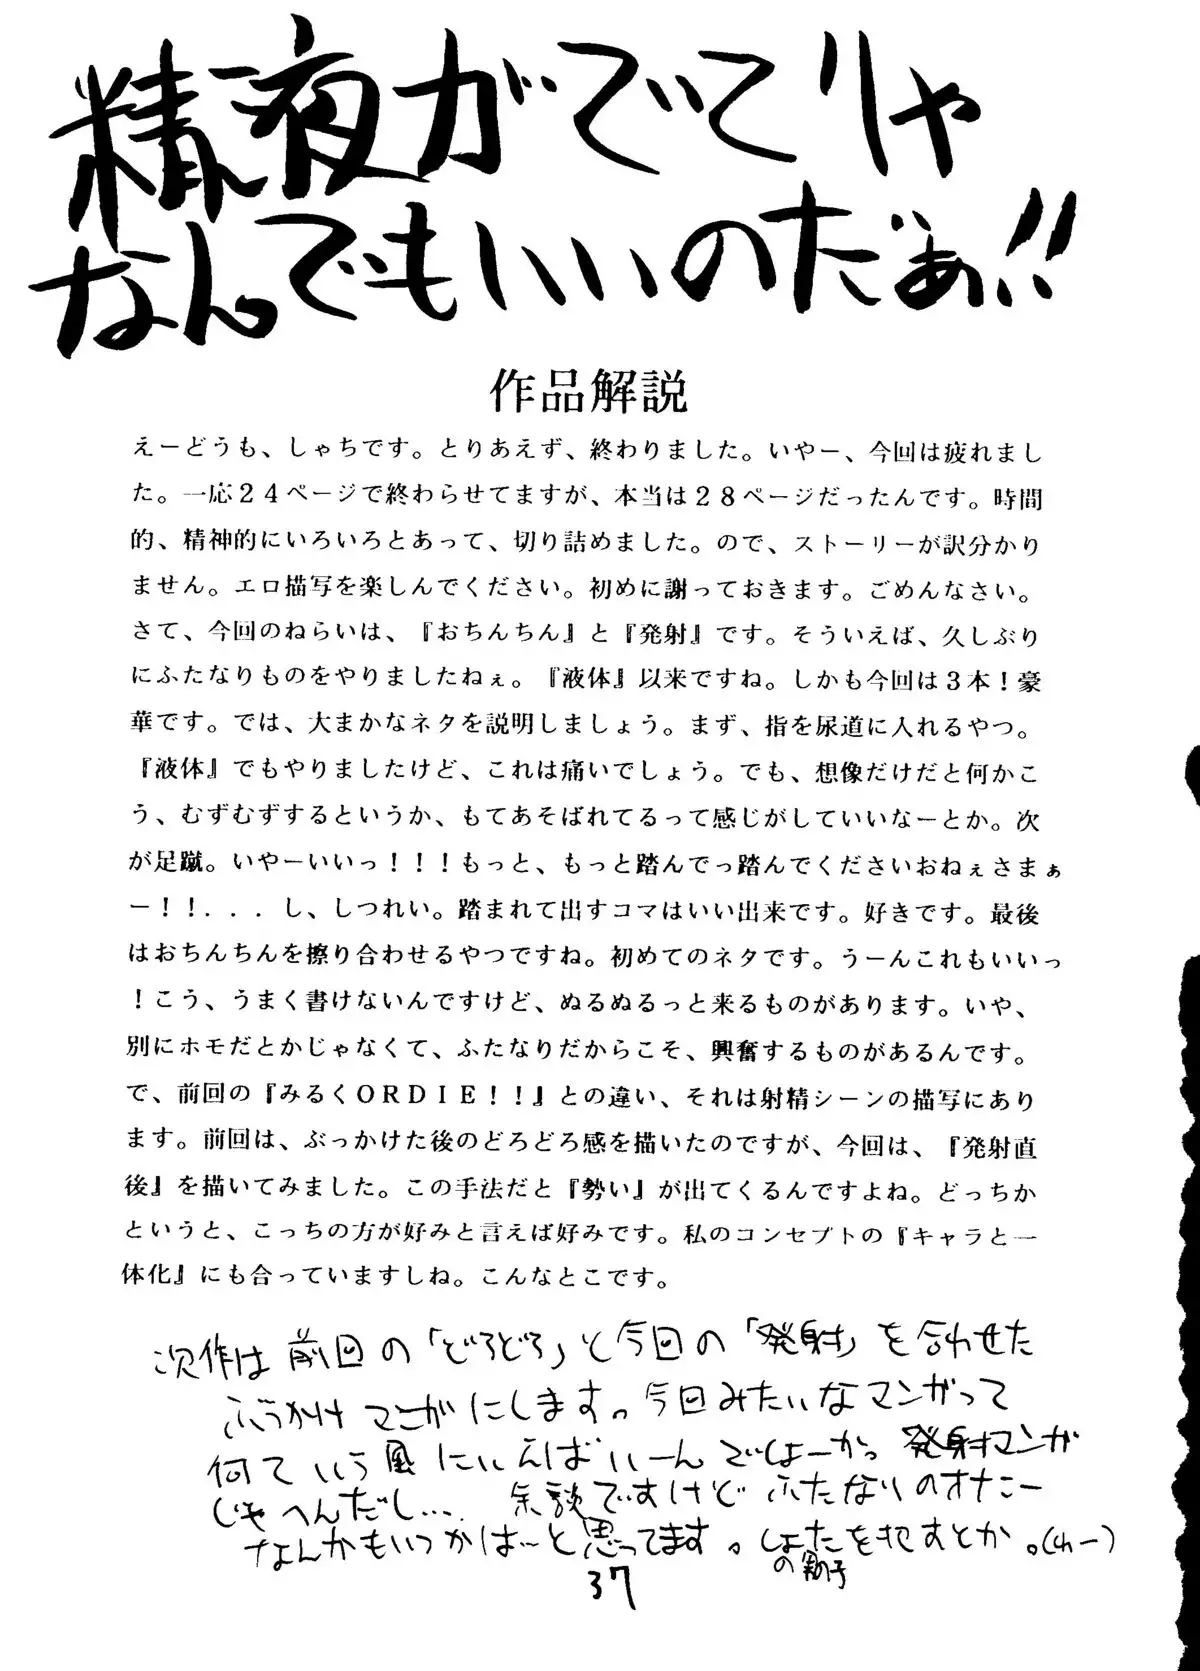 精液がでてりゃ
なんでもいいのだぁ!!
作品解説
えーどうも、しゃちです。とりあえず、終わりました。いやー、今回は疲れまし
た。一応２４ページで終わらせてますが、本当は２８ページだったんです。時間
的、精神的にいろいろとあって、切り詰めました。ので、ストーリーが訳分かり
ません。エロ描写を楽しんでください。初めに謝っておきます。ごめんなさい。
さて、今回のねらいは、『おちんちん』と『発射』です。そういえば、久しぶり
にふたなりものをやりましたねぇ。『液体』以来ですね。しかも今回は３本！豪
華です。では、大まかなネタを説明しましょう。まず、指を尿道に入れるやつ。
『液体』でもやりましたけど、これは痛いでしょう。でも、想像だけだと何かこ
う、むずむずするというか、もてあそばれてるって感じがしていいなーとか。次
が足蹴。いやーいいっ！！！もっと、もっと踏んでっ踏んでくださいおねぇさまぁ
ー！！．．．し、しつれい。踏まれて出すコマはいい出来です。好きです。最後
はおちんちんを擦り合わせるやつですね。初めてのネタです。うーんこれもいいっ
！こう、うまく書けないんですけど、ぬるぬるっと来るものがあります。いや、
別にホモだとかじゃなくて、ふたなりだからこそ、興奮するものがあるんです。
で、前回の『みるくＯＲＤＩＥ！！』との違い、それは射精シーンの描写にあり
ます。前回は、ぶっかけた後のどろどろ感を描いたのですが、今回は、『発射直
後』を描いてみました。この手法だと『勢い』が出てくるんですよね。どっちか
というと、こっちの方が好みと言えば好みです。私のコンセプトの『キャラと一
体化』にも合っていますしね。こんなとこです。
次作は前回の「どろどろ」と今回の「発射」を合わせた
ぶっかけマンガにします。今回みたいなマンガって
何ていう風にいえばいーんでしょーかっ 発射マンガ
じゃへんだし… 余談ですけどふたなりのオナニー
なんかもいつかは…と思ってます。
37